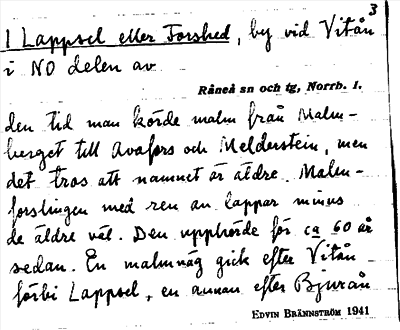 3
1 Lappsel eller Forshed, by vid Vitån
i NO delen av
Råneå sn och tg, Norrb. l.
den tid man körde malm från Malm-
berget till Avafors och Melderstein, men
det tros att namnet är äldre. Malm-
forslingen med ren av lappar minns
de äldre väl. Den upphörde för ca 60 år
sedan. En malmväg gick efter Vitån
förbi Lappsel, en annan efter Bjurån
EDVIN BRÄNNSTRÖM 1941